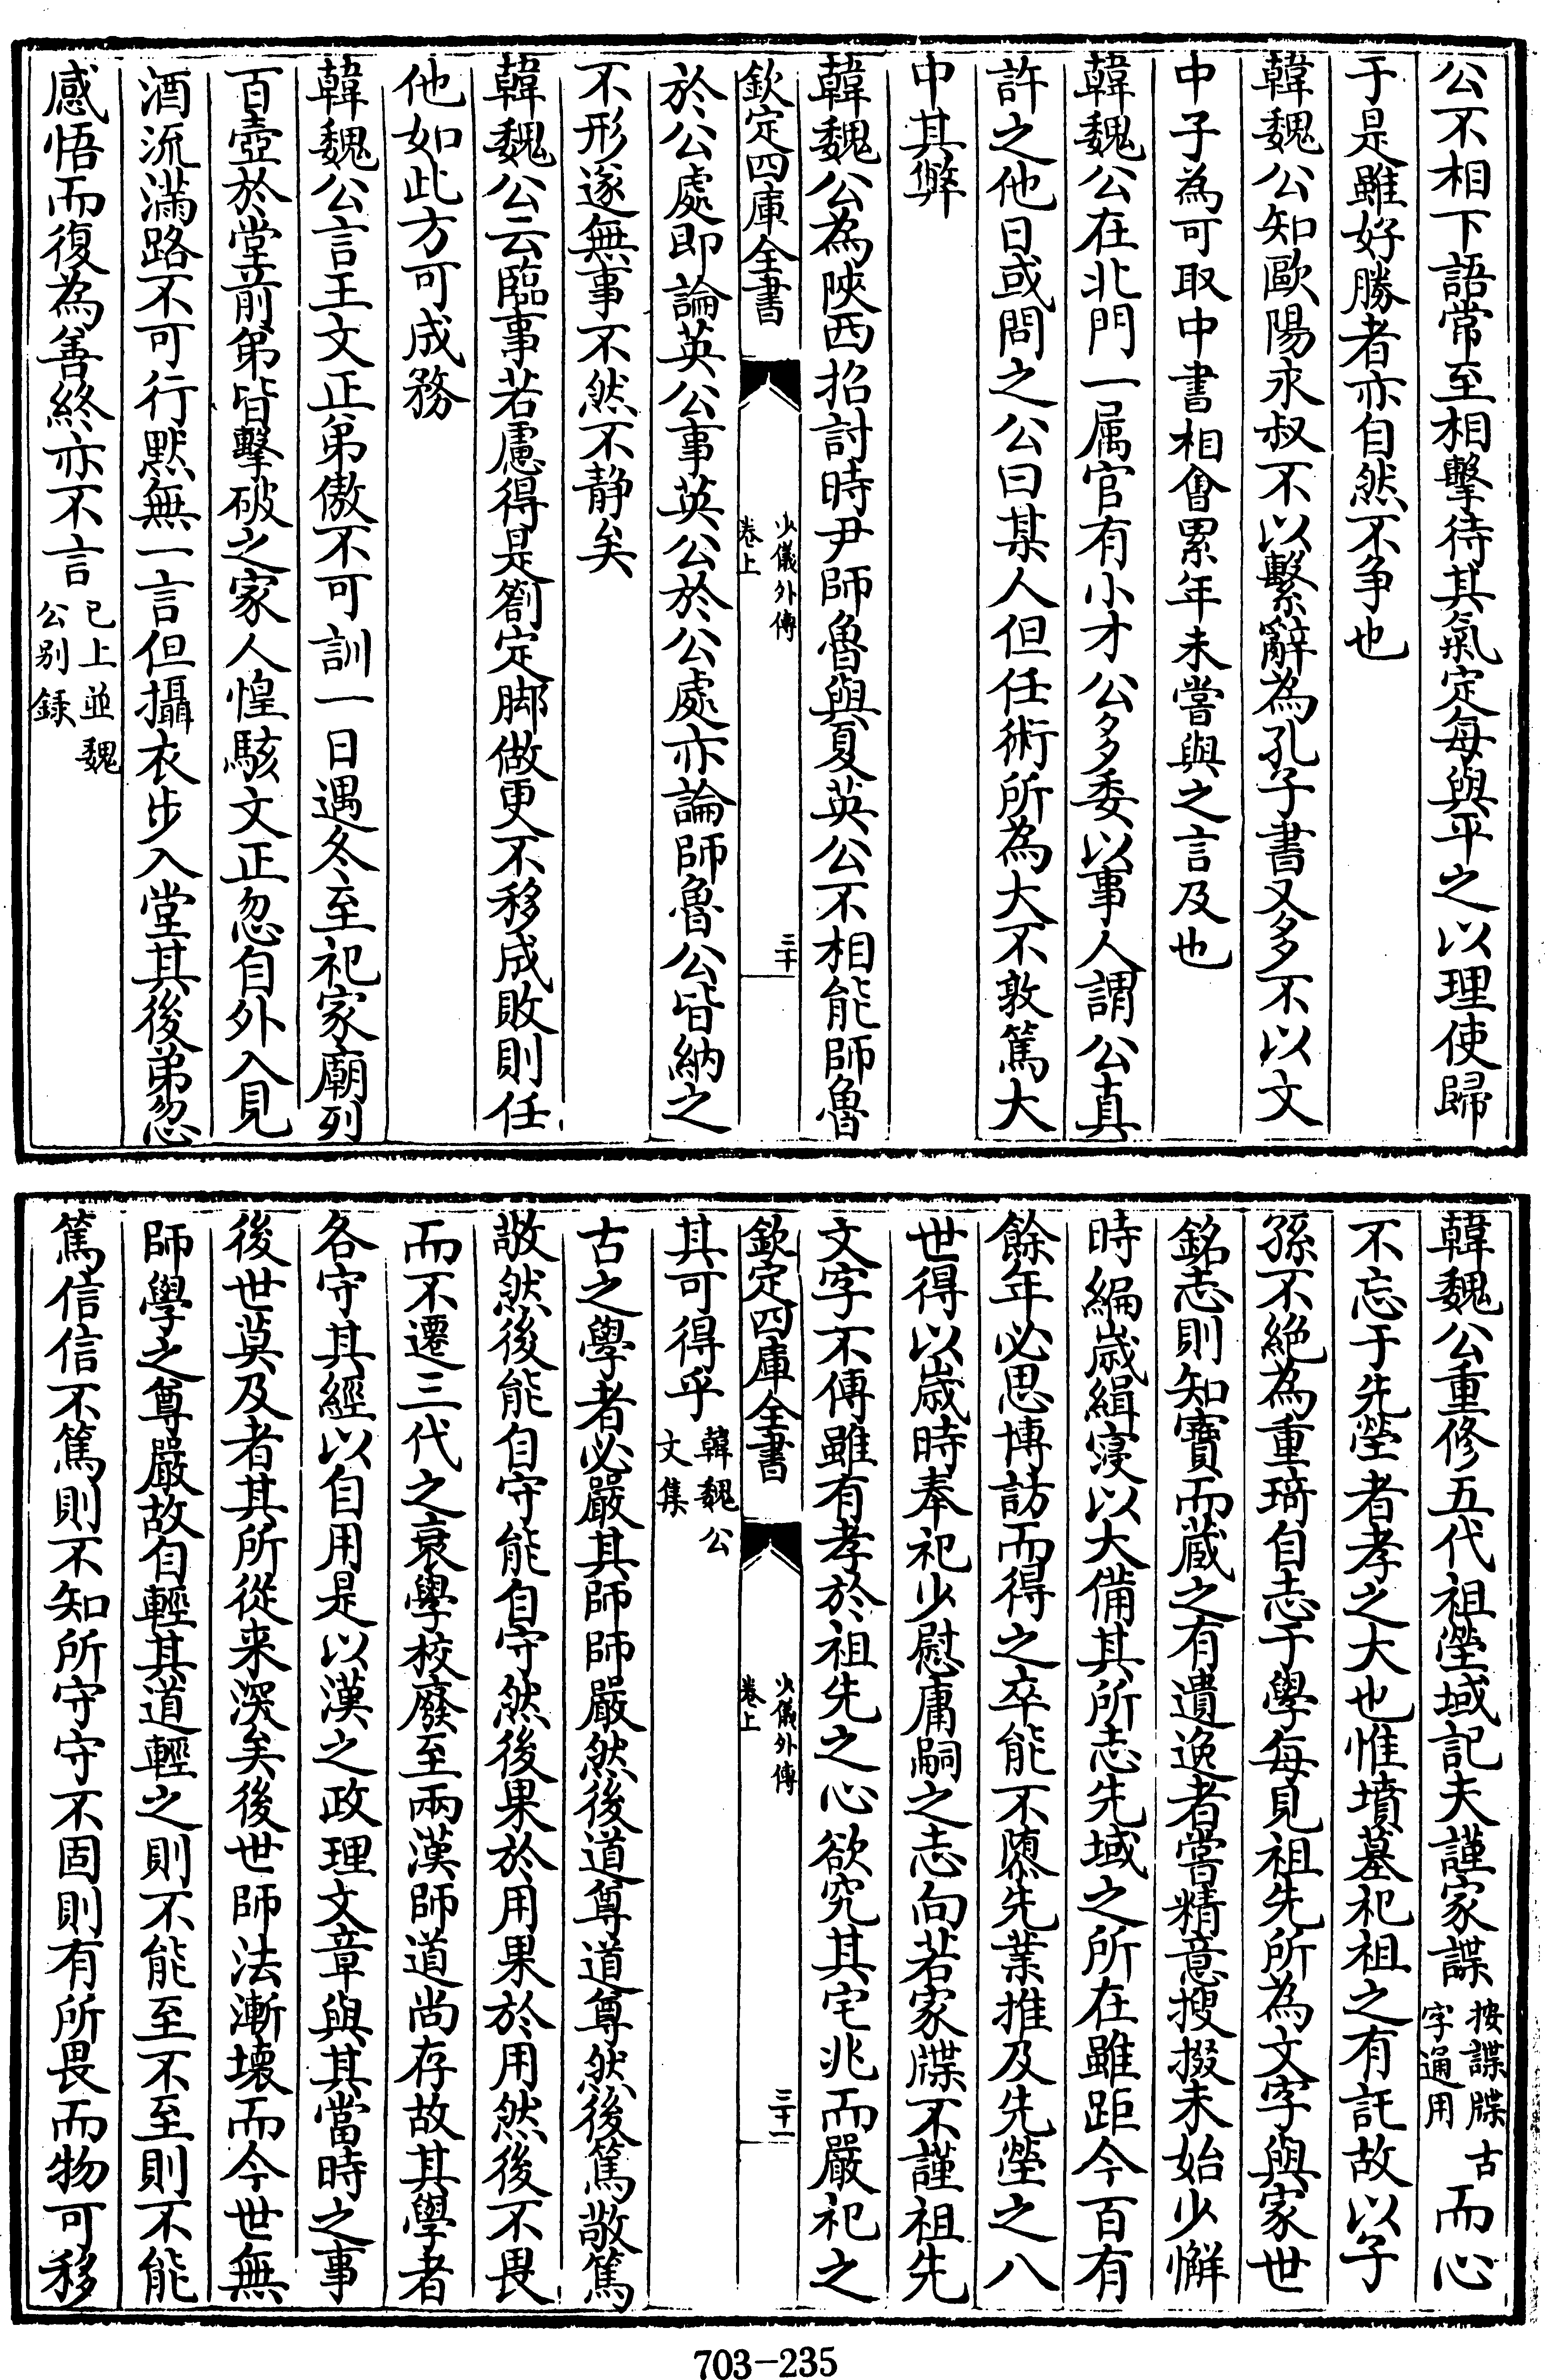 公不相下語常至相擊待其氣定每與平之以理使歸
于是雖好勝者亦自然不争也
韓魏公知歐陽永叔不以繫辭為孔子書又多不以文
中子為可取中書相會累年未嘗與之言及也
韓魏公在北門一属官有小才公多委以事人謂公真
許之他日或問之公曰某人但任術所為大不敦篤大
中其弊
韓魏公為陜西招討時尹師魯與夏英公不相能師魯
欽定四庫全書
少儀外傳
卷上
三十
於公處即論英公事英公於公處亦論師魯公皆納之
不形遂無事不然不静矣
韓魏公云臨事若慮得是劄定脚做更不移成敗則任
他如此方可成務
韓魏公言王文正弟傲不可訓一日遇冬至祀家廟列
百壺於堂前弟皆擊破之家人惶駭文正忽自外入見
酒流滿路不可行黙無一言但攝衣步入堂其後弟忽
感悟而復為善終亦不言
已上並魏
公别録
韓魏公重修五代祖塋域記夫謹家諜
按諜牒古
字通用
而心
不忘于先塋者孝之大也惟墳墓祀祖之有託故以子
孫不絶為重琦自志于學每見祖先所為文字與家世
銘志則知寶而蔵之有遺逸者嘗精意搜掇未始少懈
時編歳緝寖以大備其所志先域之所在雖距今百有
餘年必思博訪而得之卒能不隳先業推及先塋之八
世得以歳時奉祀少慰庸嗣之志向若家牒不謹祖先
文字不傳雖有孝於祖先之心欲究其宅兆而嚴祀之
欽定四庫全書
少儀外傳
卷上
三十一
其可得乎
韓魏公
文集
古之學者必嚴其師師嚴然後道尊道尊然後篤敬篤
敬然後能自守能自守然後果於用果於用然後不畏
而不遷三代之衰學校廢至兩漢師道尚存故其學者
各守其經以自用是以漢之政理文章與其當時之事
後世莫及者其所從来深矣後世師法漸壊而今世無
師學之尊嚴故自輕其道輕之則不能至不至則不能
篤信信不篤則不知所守守不固則有所畏而物可移
703-235